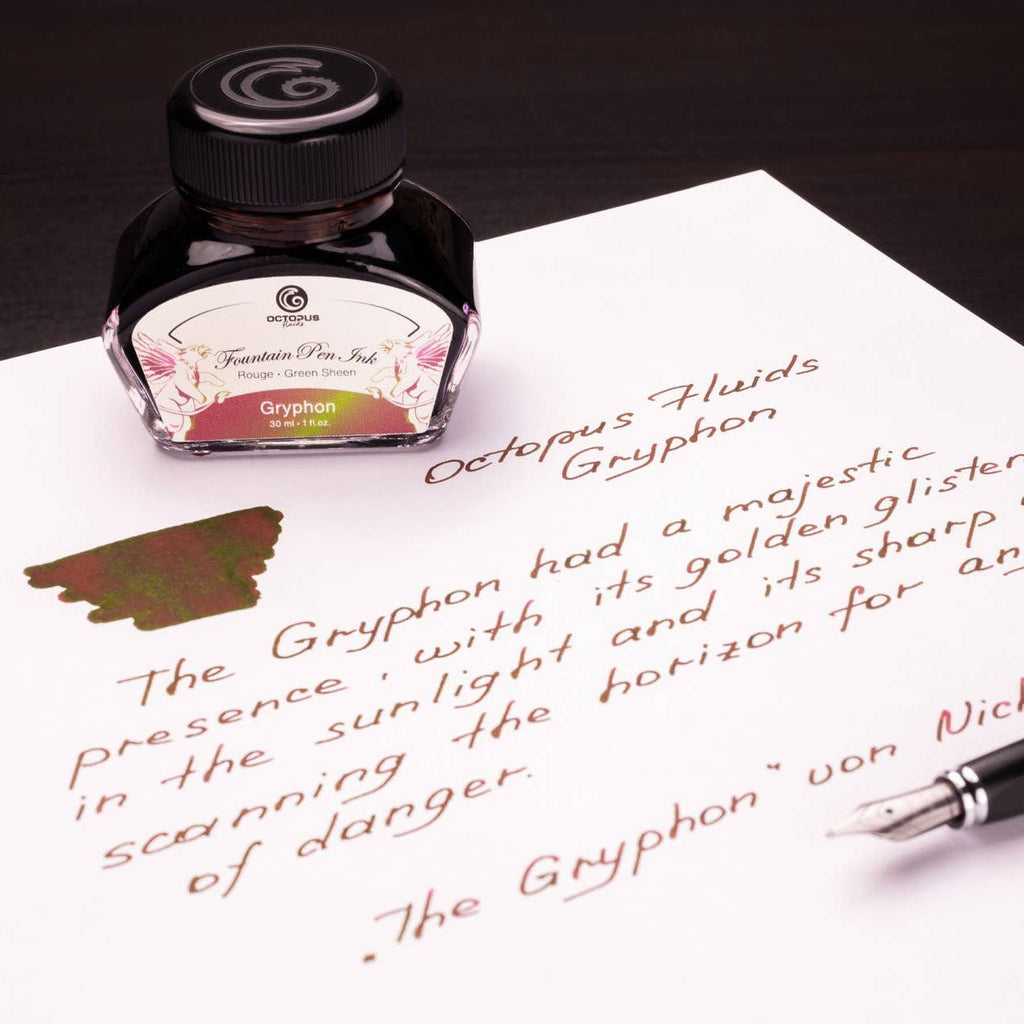 OCTOPUS
fluids
Fountain Pen Ink
Rouge • Green Sheen
Gryphon
30 ml • 1 fl.oz.
Octopus Fluids
Gryphon
The Gryphon had a majestic
presence, with its golden glisten
in the sunlight and its sharp
scanning the horizon for an
of danger.
„The Gryphon“ von Nich